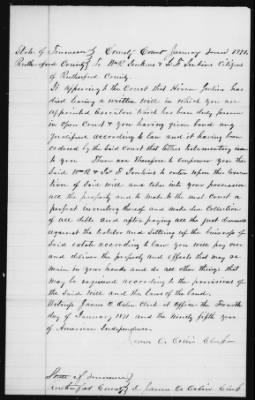 State of Tennessee } County Court January Term 1871.
Rutherford County } To Wm R Jenkins & J. F. Jenkins Citizens
of Rutherford County
It appearing to the Court that Hiram Jenkins has
died leaving a written will in which you are
appointed Executors which has been duly proven
in open Court & you having given bond and
qualified according to law and it having been
ordered by the said Court that letters testamentary issue
to you These are Therefore to empower you the
Said Wm R & J. F. Jenkins to enter upon the Execu-
tion of said will and take into your possession
all the property and to make to the next court a
perfect inventory thereof and make due Collection
of all debts and after paying all the just demands
against the testator and settling up the business of
said estate according to law you will pay over
and deliver the property and effects that may re-
main in your hands and do all other things that
may be required according to the provisions of
the said will and the laws of the land.
Witness James O. Oslin Clerk at Office the Fourth
day of January 1871 and the Ninety fifth year
of American Independence.
James O. Oslin Clerk
State of Tennessee }
Rutherford County } I James O. Oslin Clerk